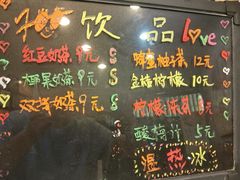 饮品 Love
红豆奶茶 9元 S
椰果奶茶 9元 S
双拼奶茶 9元 S
蜂蜜柚子茶 12元
金桔柠檬 10元
柠檬
酸梅汁 5元
温 热 冰